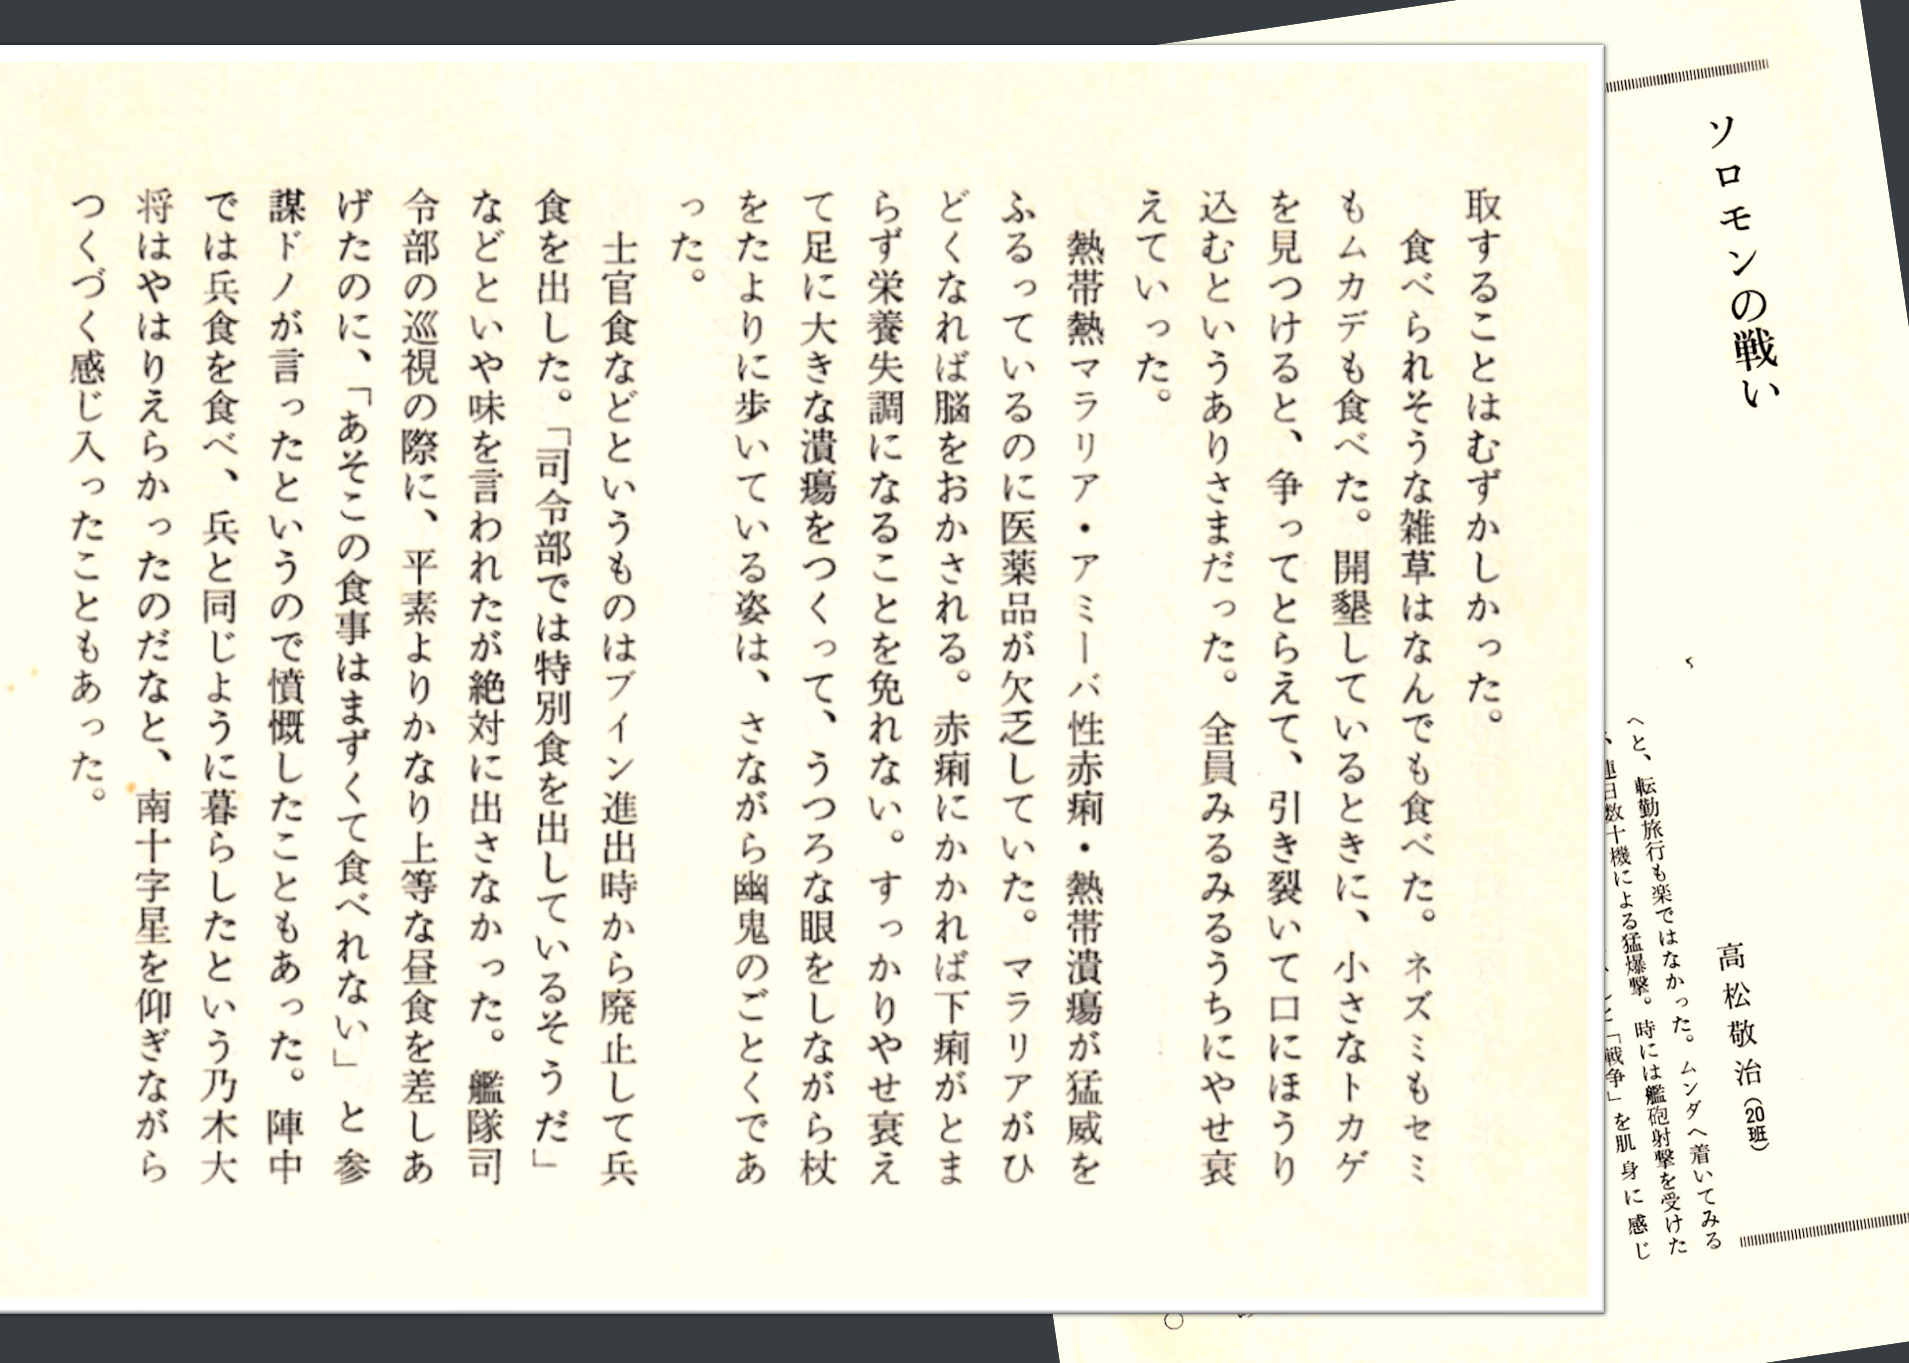 ソロモンの戦い
高松敬治（20班）
へと、転勤旅行も楽ではなかった。ムンダへ着いてみる
連日数十機による猛爆撃。時には艦砲射撃を受けた
「戦争」を肌身に感じ
取することはむずかしかった。
食べられそうな雑草はなんでも食べた。ネズミもセミ
もムカデも食べた。開墾しているときに、小さなトカゲ
を見つけると、争ってとらえて、引き裂いて口にほうり
込むというありさまだった。全員みるみるうちにやせ衰
えていった。
熱帯熱マラリア・アミーバ性赤痢・熱帯潰瘍が猛威を
ふるっているのに医薬品が欠乏していた。マラリアがひ
どくなれば脳をおかされる。赤痢にかかれば下痢がとま
らず栄養失調になることを免れない。すっかりやせ衰え
て足に大きな潰瘍をつくって、うつろな眼をしながら杖
をたよりに歩いている姿は、さながら幽鬼のごとくであ
った。
士官食などというものはブイン進出時から廃止して兵
食を出した。「司令部では特別食を出しているそうだ」
などといや味を言われたが絶対に出さなかった。艦隊司
令部の巡視の際に、平素よりかなり上等な昼食を差しあ
げたのに、「あそこの食事はまずくて食べれない」と参
謀ドノが言ったというので憤慨したこともあった。陣中
では兵食を食べ、兵と同じように暮らしたという乃木大
将はやはりえらかったのだなと、南十字星を仰ぎながら
つくづく感じ入ったこともあった。